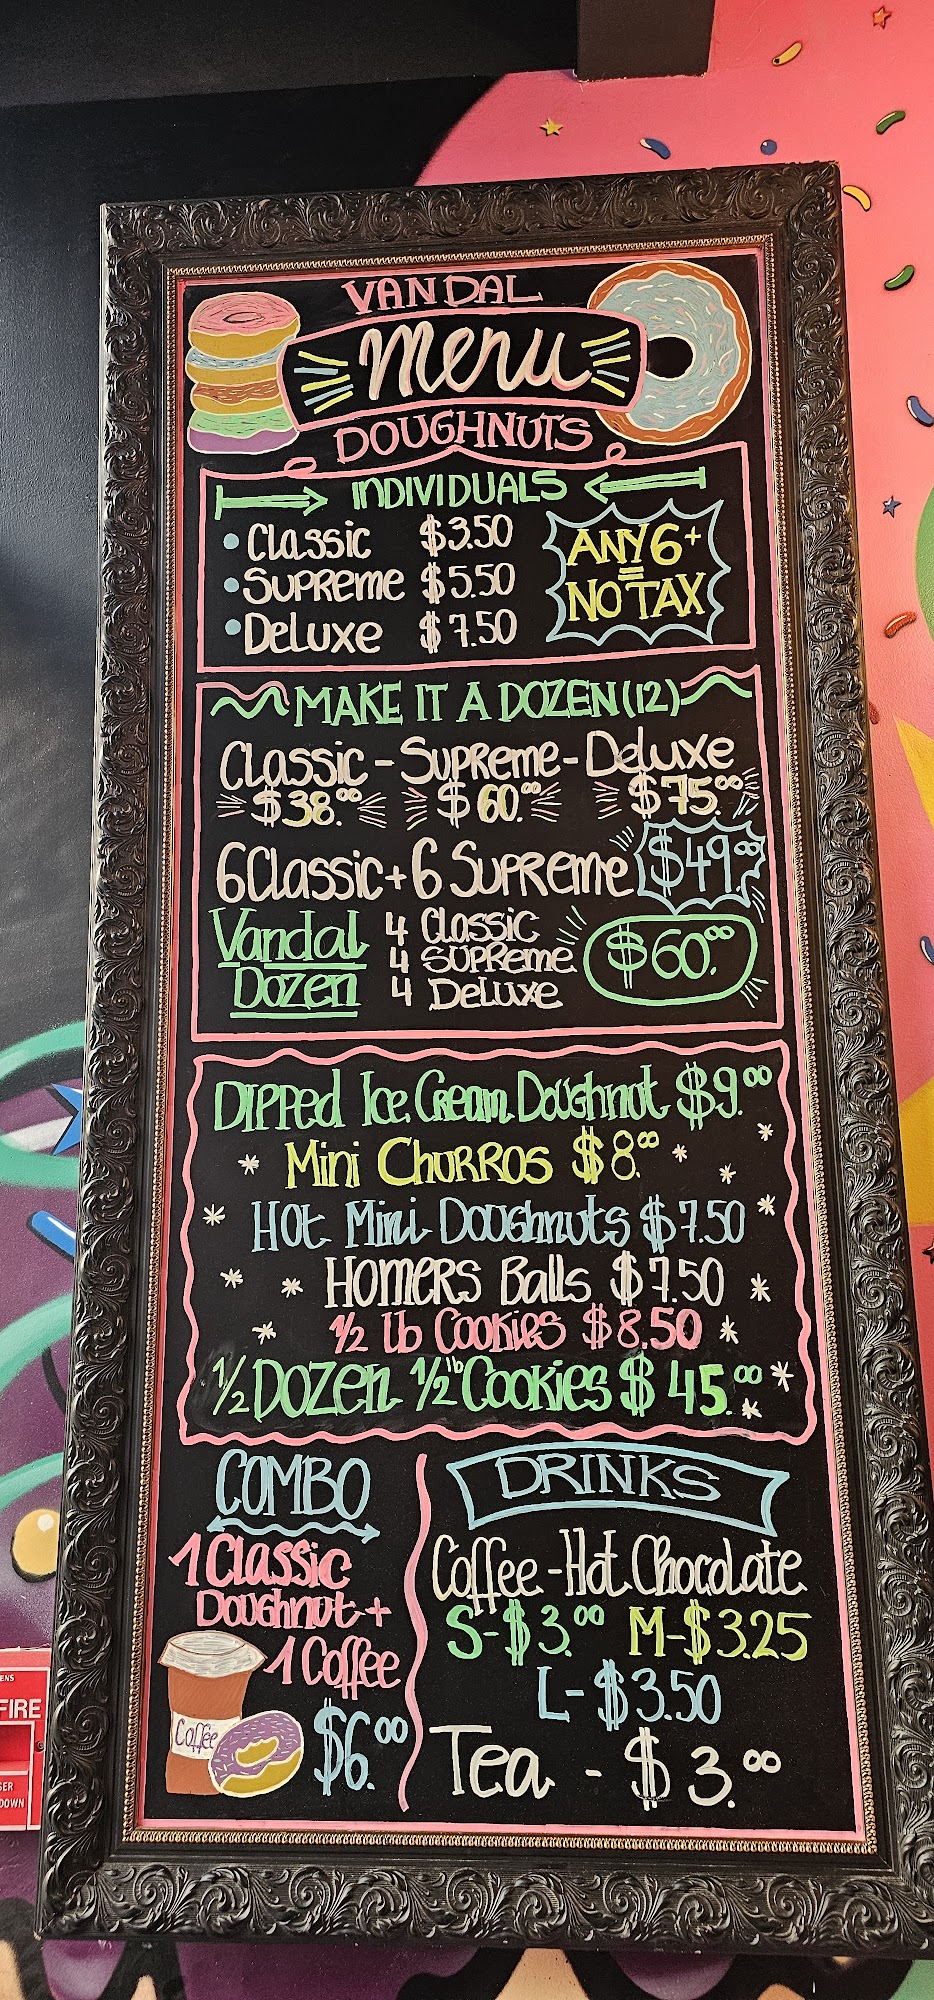 VANDAL
Menu
DOUGHNUTS
INDIVIDUALS
• Classic $3.50
• Supreme $5.50
• Deluxe $7.50
ANY 6+
=
NO TAX
MAKE IT A DOZEN (12)
Classic - Supreme - Deluxe
$38.00 $60.00 $75.00
6 Classic + 6 Supreme $49.00
Vandal
Dozen
4 Classic
4 Supreme
4 Deluxe
$60.00
Dipped Ice Cream Doughnut $9.00
Mini Churros $8.00
Hot Mini Doughnuts $7.50
Homers Balls $7.50
1/2 lb Cookies $8.50
1/2 Dozen 1/2 lb Cookies $45.00
COMBO
1 Classic
Doughnut +
1 Coffee
$6.00
Coffee
DRINKS
Coffee - Hot Chocolate
S-$3.00 M-$3.25
L-$3.50
Tea - $3.00
FIRE
DOWN